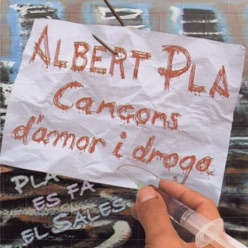 ALBERT PLA
Cançons
d'amor i droga
PLA
ES FA
EL SALES